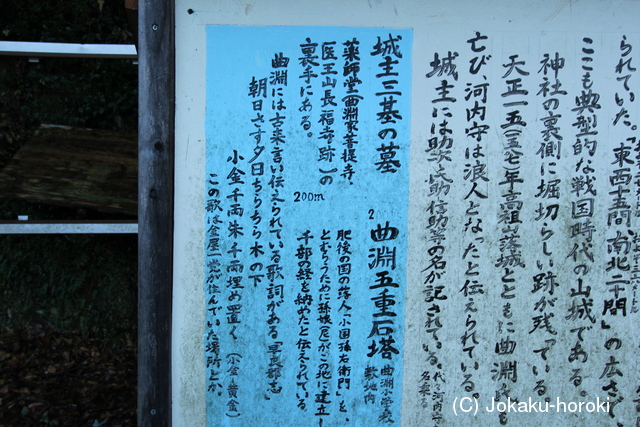 られていた。「東西十五間、南北二十間」の広さで
ここも典型的な戦国時代の山城である。
神社の裏側に堀切らしい跡が残っている
天正一五(一五八七)年高祖山落城とともに曲淵
亡び、河内守は浪人となったと伝えられている。
城主には助、信助等の名が記されている。
城主三基の墓
薬師堂(曲淵家菩提寺・
医王山長福寺跡)の
裏手にある。
200m
2 曲淵五重石塔
曲淵小学校
敷地内
肥後の国の落人「小国孫右衛門」を、
とむらうために孫娘(尼)がこの地に建立し
千部の経を納めたと伝えられている。
曲淵には古来言い伝えられている歌詞がある
朝日さす夕日ちらちら木の下
小金千両朱千両埋め置く (小金=黄金)
この歌は金屋一党が住んでいた場所とか
(C) Jokaku-horoki